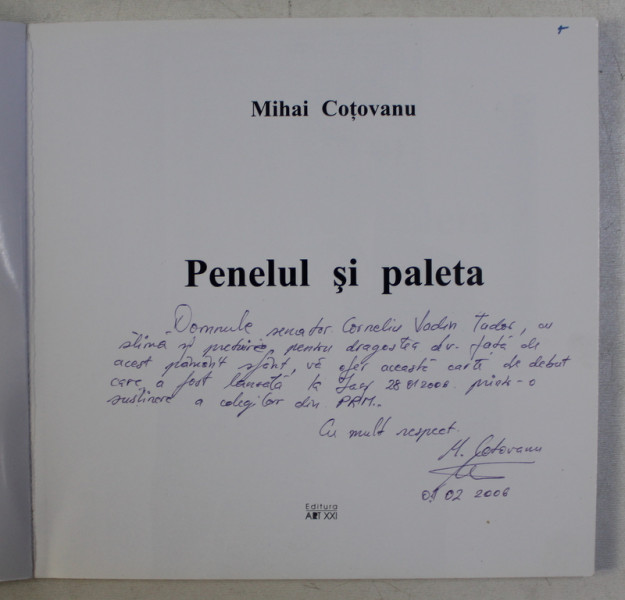 Mihai Coțovanu
Penelul și paleta
Domnule senator Corneliu Vadim Tudor, cu
stimă și prețuire, pentru dragostea dv. față de
acest pământ sfânt, vă ofer această carte de debut
care a fost lansată la Iași 28 01 2006. printr-o
susținere a colegilor din PRM.
Cu mult respect.
M. Coțovanu
02 2006
Editura
ART XXI